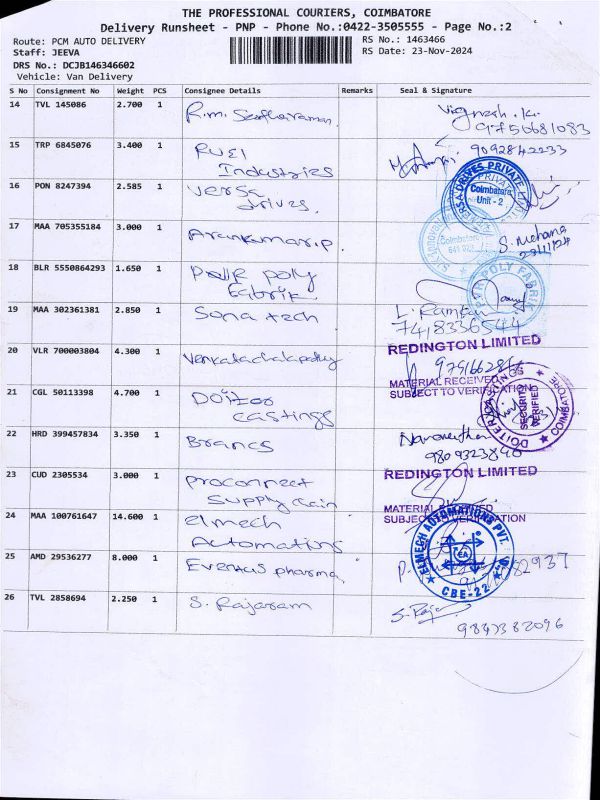 THE PROFESSIONAL COURIERS, COIMBATORE
Delivery Runsheet - PNP - Phone No.:0422-3505555 - Page No.:2
Route: PCM AUTO DELIVERY
RS No.: 1463466
Staff: JEEVA
RS Date: 23-Nov-2024
DRS No.: DCJB146346602
Vehicle: Van Delivery
S No Consignment No Weight PCS Consignee Details Remarks Seal & Signature
14 TVL 145086 2.700 1 R.m. Seetharaman
Vignesh .K.
9750681083
15 TRP 6845076 3.400 1 RUEI
Industries
9092842233
16 PON 8247394 2.585 1 Versa
drives.
VERSA DRIVES PRIVATE LIMITED
Coimbatore
Unit - 2
17 MAA 705355184 3.000 1 Arunkumar.p.
Coimbatore
S. Mehana
18 BLR 5550864293 1.650 1 poly
Fabrik
POLY FABRIK
19 MAA 302361381 2.850 1 Sona tech
7418336544
20 VLR 700003804 4.300 1 Venkatachalapathy
REDINGTON LIMITED
MATERIAL RECEIVED
SUBJECT TO VERIFICATION
21 CGL 50113398 4.700 1 castings
SECURITY
VERIFIED
COIMBATORE
22 HRD 399457834 3.350 1 Brancs
9809323846
23 CUD 2305534 3.000 1 proconnect
Supply chain
REDINGTON LIMITED
MATERIAL
SUBJECT TO VERIFICATION
24 MAA 100761647 14.600 1 elmech
Automations
ELMECH AUTOMATIONS PVT
EA
CBE-22
25 AMD 29536277 8.000 1 Eventus pharma.
26 TVL 2858694 2.250 1 S. Rajaram
S. Raja
9843382096